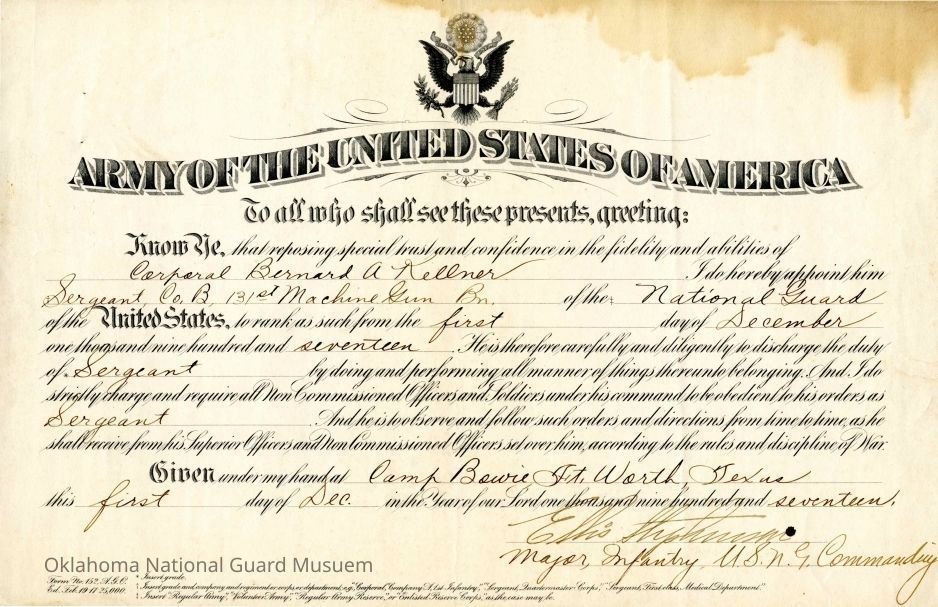 ARMY OF THE UNITED STATES OF AMERICA
To all who shall see these presents, greeting:
Know Ye, that reposing special trust and confidence in the fidelity and abilities of
Corporal Bernard A Kellner I do hereby appoint him
Sergeant, Co, B, 131st Machine Gun Bn. of the National Guard
of the United States, to rank as such from the first day of December
one thousand nine hundred and seventeen. He is therefore carefully and diligently to discharge the duty
of Sergeant by doing and performing all manner of things thereunto belonging. And I do
strictly charge and require all Non Commissioned Officers and Soldiers under his command to be obedient to his orders as
Sergeant And he is to observe and follow such orders and directions from time to time, as he
shall receive from his Superior Officers and Non Commissioned Officers set over him, according to the rules and discipline of War.
Given under my hand at Camp Bowie, Ft. Worth, Texas
this first day of Dec. in the Year of our Lord one thousand nine hundred and seventeen.
Ellis Stephenson
Major, Infantry, U.S.N.G. Commanding
Oklahoma National Guard Musuem
Form No. 152, A.G.O.
Ed. Feb. 19 17-25,000.
* Insert grade.
† Insert grade and company and regiment or corps or department, e.g., "Corporal, Company A, 1st Infantry," "Sergeant, Quartermaster Corps", "Sergeant, First class, Medical Department."
‡ Insert "Regular Army", "Volunteer Army", "Regular Army Reserve," or Enlisted Reserve Corps," as the case may be.